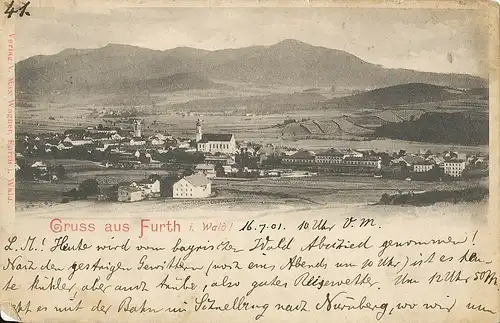 41.
Verlag v. Max Wagner, Furth i. Wald
Gruss aus Furth i. Wald!
16.7.01. 10 Uhr V.M.
L. M.! Heute wird vom bayrischen Wald Abschied genommen!
Nach den gestrigen Gewittern (worin eines Abends um 10 Uhr) ist es heu-
te kühler, aber auch trübe, also gutes Reisewetter. Um 12 Uhr 50 M
geht es mit der Bahn im Schnellzug nach Nürnberg, wo wir um